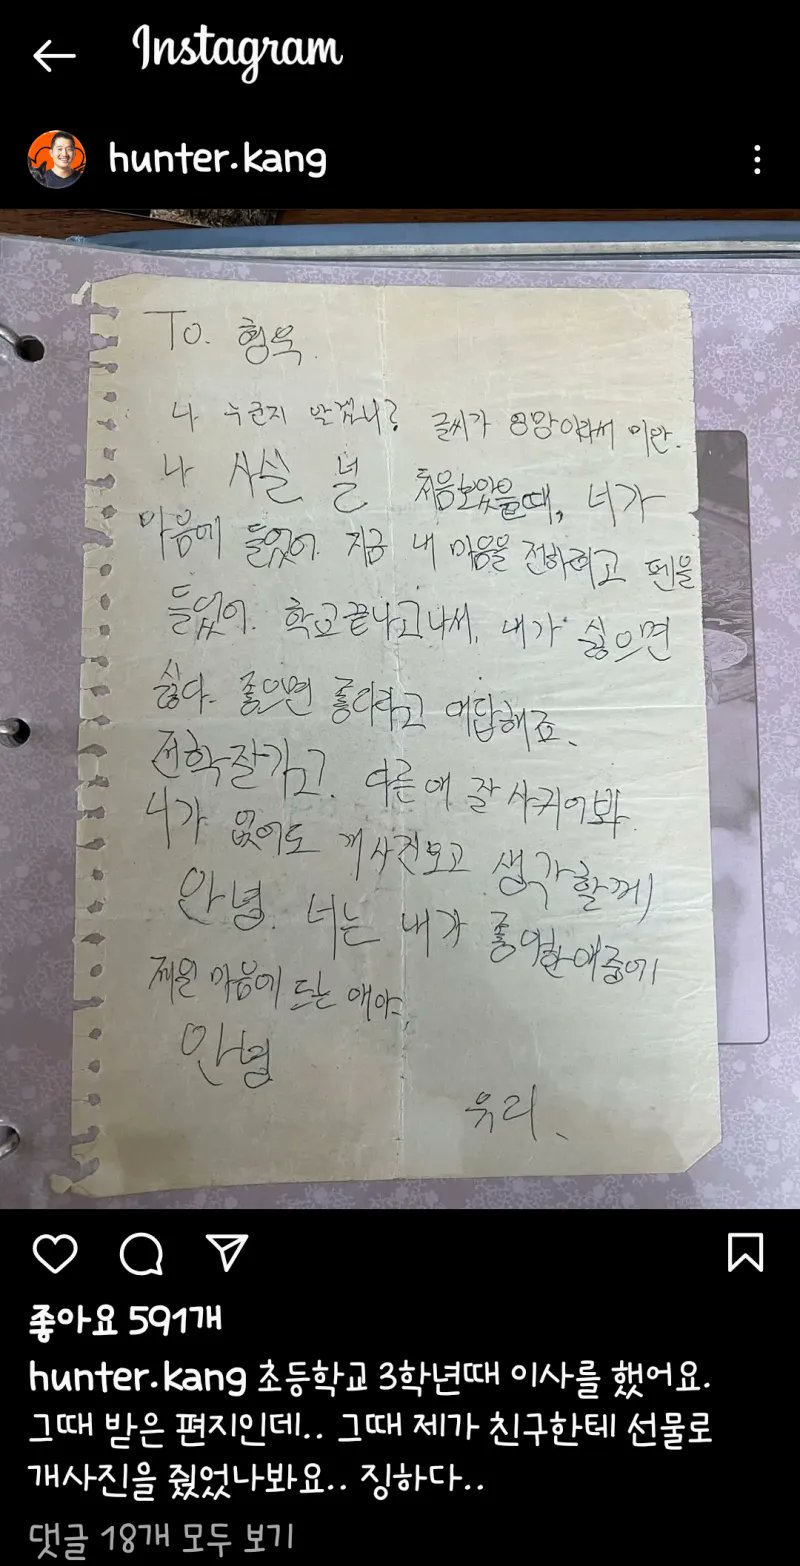 Instagram
hunter.kang
To. 형욱.
나 누군지 알겠니? 글씨가 엉망이라서 미안.
나 사실 널 처음보았을때, 너가
마음에 들었어. 지금 내 마음을 전하려고 펜을
들었어. 학교끝나고나서, 내가 싫으면
싫다. 좋으면 좋다라고 대답해죠.
전학잘가고. 다른 애 잘 사귀어봐.
너가 없어도 개사진보고 생각할께
안녕. 너는 내가 좋아한애중에
제일 마음에 드는 애야.
안녕
유리.
좋아요 591개
hunter.kang 초등학교 3학년때 이사를 했어요.
그때 받은 편지인데.. 그때 제가 친구한테 선물로
개사진을 줬었나봐요.. 징하다..
댓글 18개 모두 보기